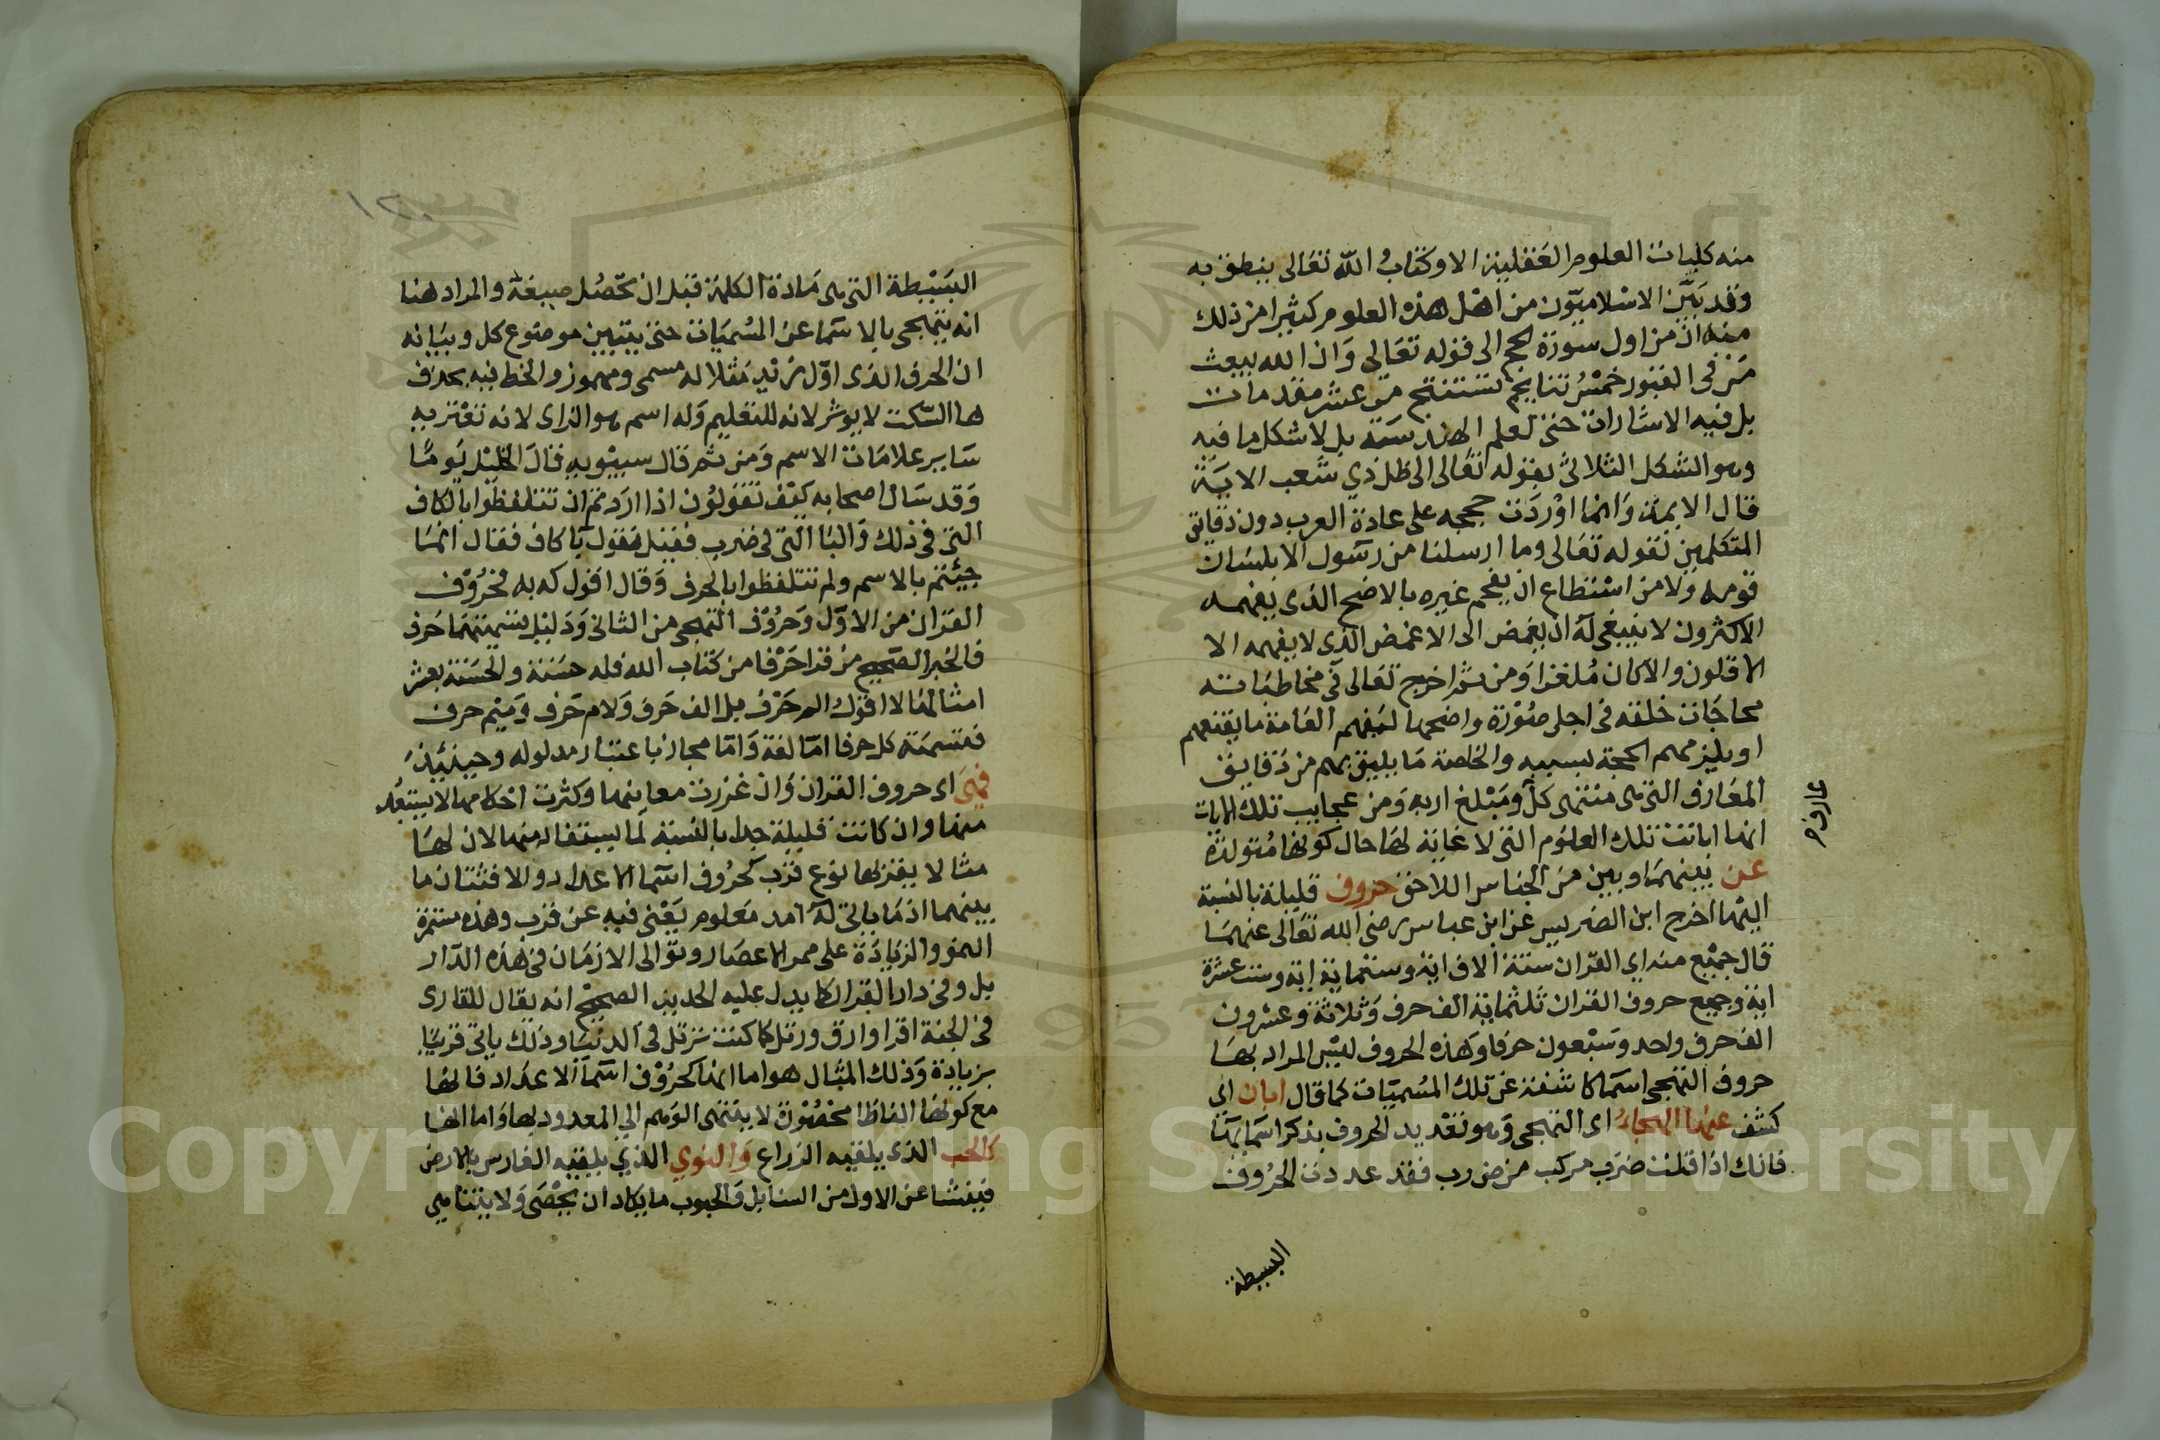 منه كليات العلوم العقلية الا وكتاب الله تعالى ينطق به
وقد بين الاسلاميون من اهل هذه العلوم كثيرا من ذلك
منه ان من اول سورة الحج الى قوله تعالى وان الله يبعث
من في القبور خمس نتايج تستنتج من عشر مقدمات
بل فيه الاشارات حتى لعلم الهندسة بل لاشكل ما فيه
وهو الشكل الثلاثي بقوله تعالى الى ظل ذي شعب الاية
قال الايمة وانما اوردت حججه على عادة العرب دون دقايق
المتكلمين لقوله تعالى وما ارسلنا من رسول الا بلسان
قومه ولا من استطاع ان يفحم غيره بالاضح الذى يفهمه
الاكثرون لا ينبغي له ان يغمض الى الاغمض الذى لا يفهمه الا
الاقلون والا كان ملغزا ومن ثم اخرج تعالى في مخاطباته
محاجات خلقه في اجلى صورة واضحها لتفهم العامة ما يقنعهم
او يلزمهم الحجة بسببه والخاصة ما يليق بهم من دقايق
المعارف التي هى منتهى كل ومبلغ اربه ومن عجايب تلك الايات
انها ابانت تلك العلوم التى لا غاية لها حال كونها متولدة
عن بينهما وبين من الجناس اللاحق حروف قليلة بالنسبة
اليها اخرج ابن الضريس عن ابن عباس رضى الله تعالى عنهما
قال جميع منه اي القران ستة الاف اية وستماية اية وست عشرة
اية وجميع حروف القران ثلثماية الف حرف وثلاثة وعشرون
الف حرف واحد وسبعون حرفا وهذه الحروف ليس المراد بها
حروف التهجى اسما كاشفة عن تلك المسميات كما قال ابان اى
كشف عنها الهجاء اى التهجى وهو تعديد الحروف بذكر اسمايها
فانك اذا قلت ضرب مركب من ض ر ب فقد عددت الحروف
البسيطة
البسيطة التى هى مادة الكلمة قبل ان تحصل صيغة والمراد هنا
انه يتهجى بالاسما عن المسميات حتى يتبين موضوع كل وبيانه
ان الحرف الذى اول زيد مثلا له مسمى ومهموز والخط فيه بحذف
ها السكت لا يوثر لانه للتعليم وله اسم هو الزاى لانه تعتريه
ساير علامات الاسم ومن ثم قال سيبويه قال الخليل يوما
وقد سال اصحابه كيف تقولون اذا اردتم ان تتلفظوا بالكاف
التي في ذلك والبا التى في ضرب فقيل نقول با كاف فقال انما
جيئتم بالاسم ولم تتلفظوا بالحرف وقال اقول كه به فحروف
القران من الاول وحروف التهجى من الثانى ودليل تسميتهما حرف
فالخبر الصحيح من قرا حرفا من كتاب الله فله حسنة والحسنة بعشر
امثالها لا اقول الم حرف بل الف حرف ولام حرف وميم حرف
فتسمية كل حرفا اما لغة واما مجاز باعتبار مدلوله وحينئذ
فهى اى حروف القران وان غزرت معانيها وكثرت احكامها لا يستبعد
منها وان كانت قليلة جدا بالنسبة لما يستفاد منها لان لها
مثالا يقربها نوع قرب كحروف اسما الاعداد والا فشتان ما
بينهما اذ ما ياتى له امد معلوم يفنى فيه عن قرب وهذه مستمرة
النمو والزيادة على ممر الاعصار وتوالى الازمان في هذه الدار
بل وفى دار القرار كما يدل عليه الحديث الصحيح انه يقال للقارى
في الجنة اقرا وارق ورتل كما كنت ترتل في الدنيا وذلك ياتى قريبا
بزيادة وذلك المثال هو اما انها كحروف اسما الاعداد فانها
مع كونها الفاظا محصورة لا ينتهى الوهم الي المعدود بها واما انها
كالحب الذى يلقيه الزراع والنوي الذي يلقيه الغارس بالارض
فينشا عن الاول من السنابل والحبوب ما يكاد ان يحصى ولا يتناهى
Copyright © King Saud University